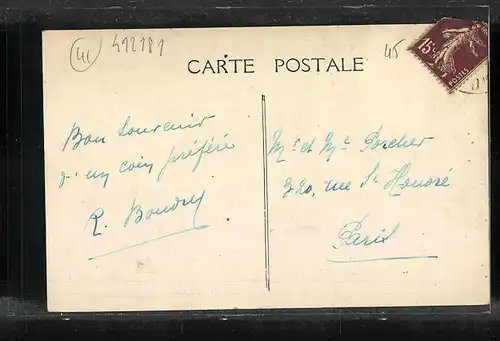 41
412181
45
15c
POSTES
CARTE POSTALE
Bon Souvenir
d'un coin préféré
R.
Mr et Me Porcher
220, rue St Honoré
Paris